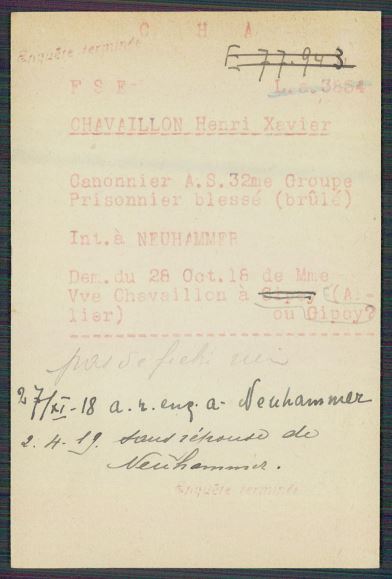 C H A
Enquête terminée
E 77.943
F S E- L.a.3684
CHAVAILLON Henri Xavier
Canonnier A.S.32me Groupe
Prisonnier blessé (brûlé)
Int.à NEUHAMMER
Dem.du 28 Oct.18 de Mme
Vve Chavaillon à Gipsy (Al-
lier) ou Gipcy?
pas de fiche
27/XI-18 a.r.enq.a- Neuhammer
2.4.19. sans réponse de
Neuhammer.
Enquête terminée